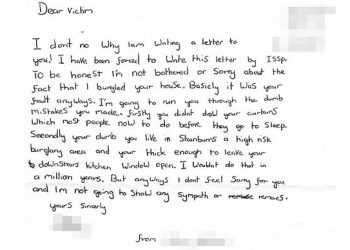 Dear Victim.
I dont no Why Iam Writing a letter to
you! I have been forced to Write this letter by ISSP.
To be honest I'm not bothered or Sorey about the
fact that I burgled your house. Basicly it Was your
fault anyways. I'm going to run you through the dumb
mistakes you made. firstly you didnt draw your curtains
Which most people now to do before they go to Sleep.
Secondly your dumb you live in Stainburn a high risk
burglary area and your thick enough to leave your
downstairs kitchen window open. I Wouldnt do that in
a million years. But anyways I dont feel Sorry for you
and Im not going to Show any Sympath or remores.
yours Sinserly
from